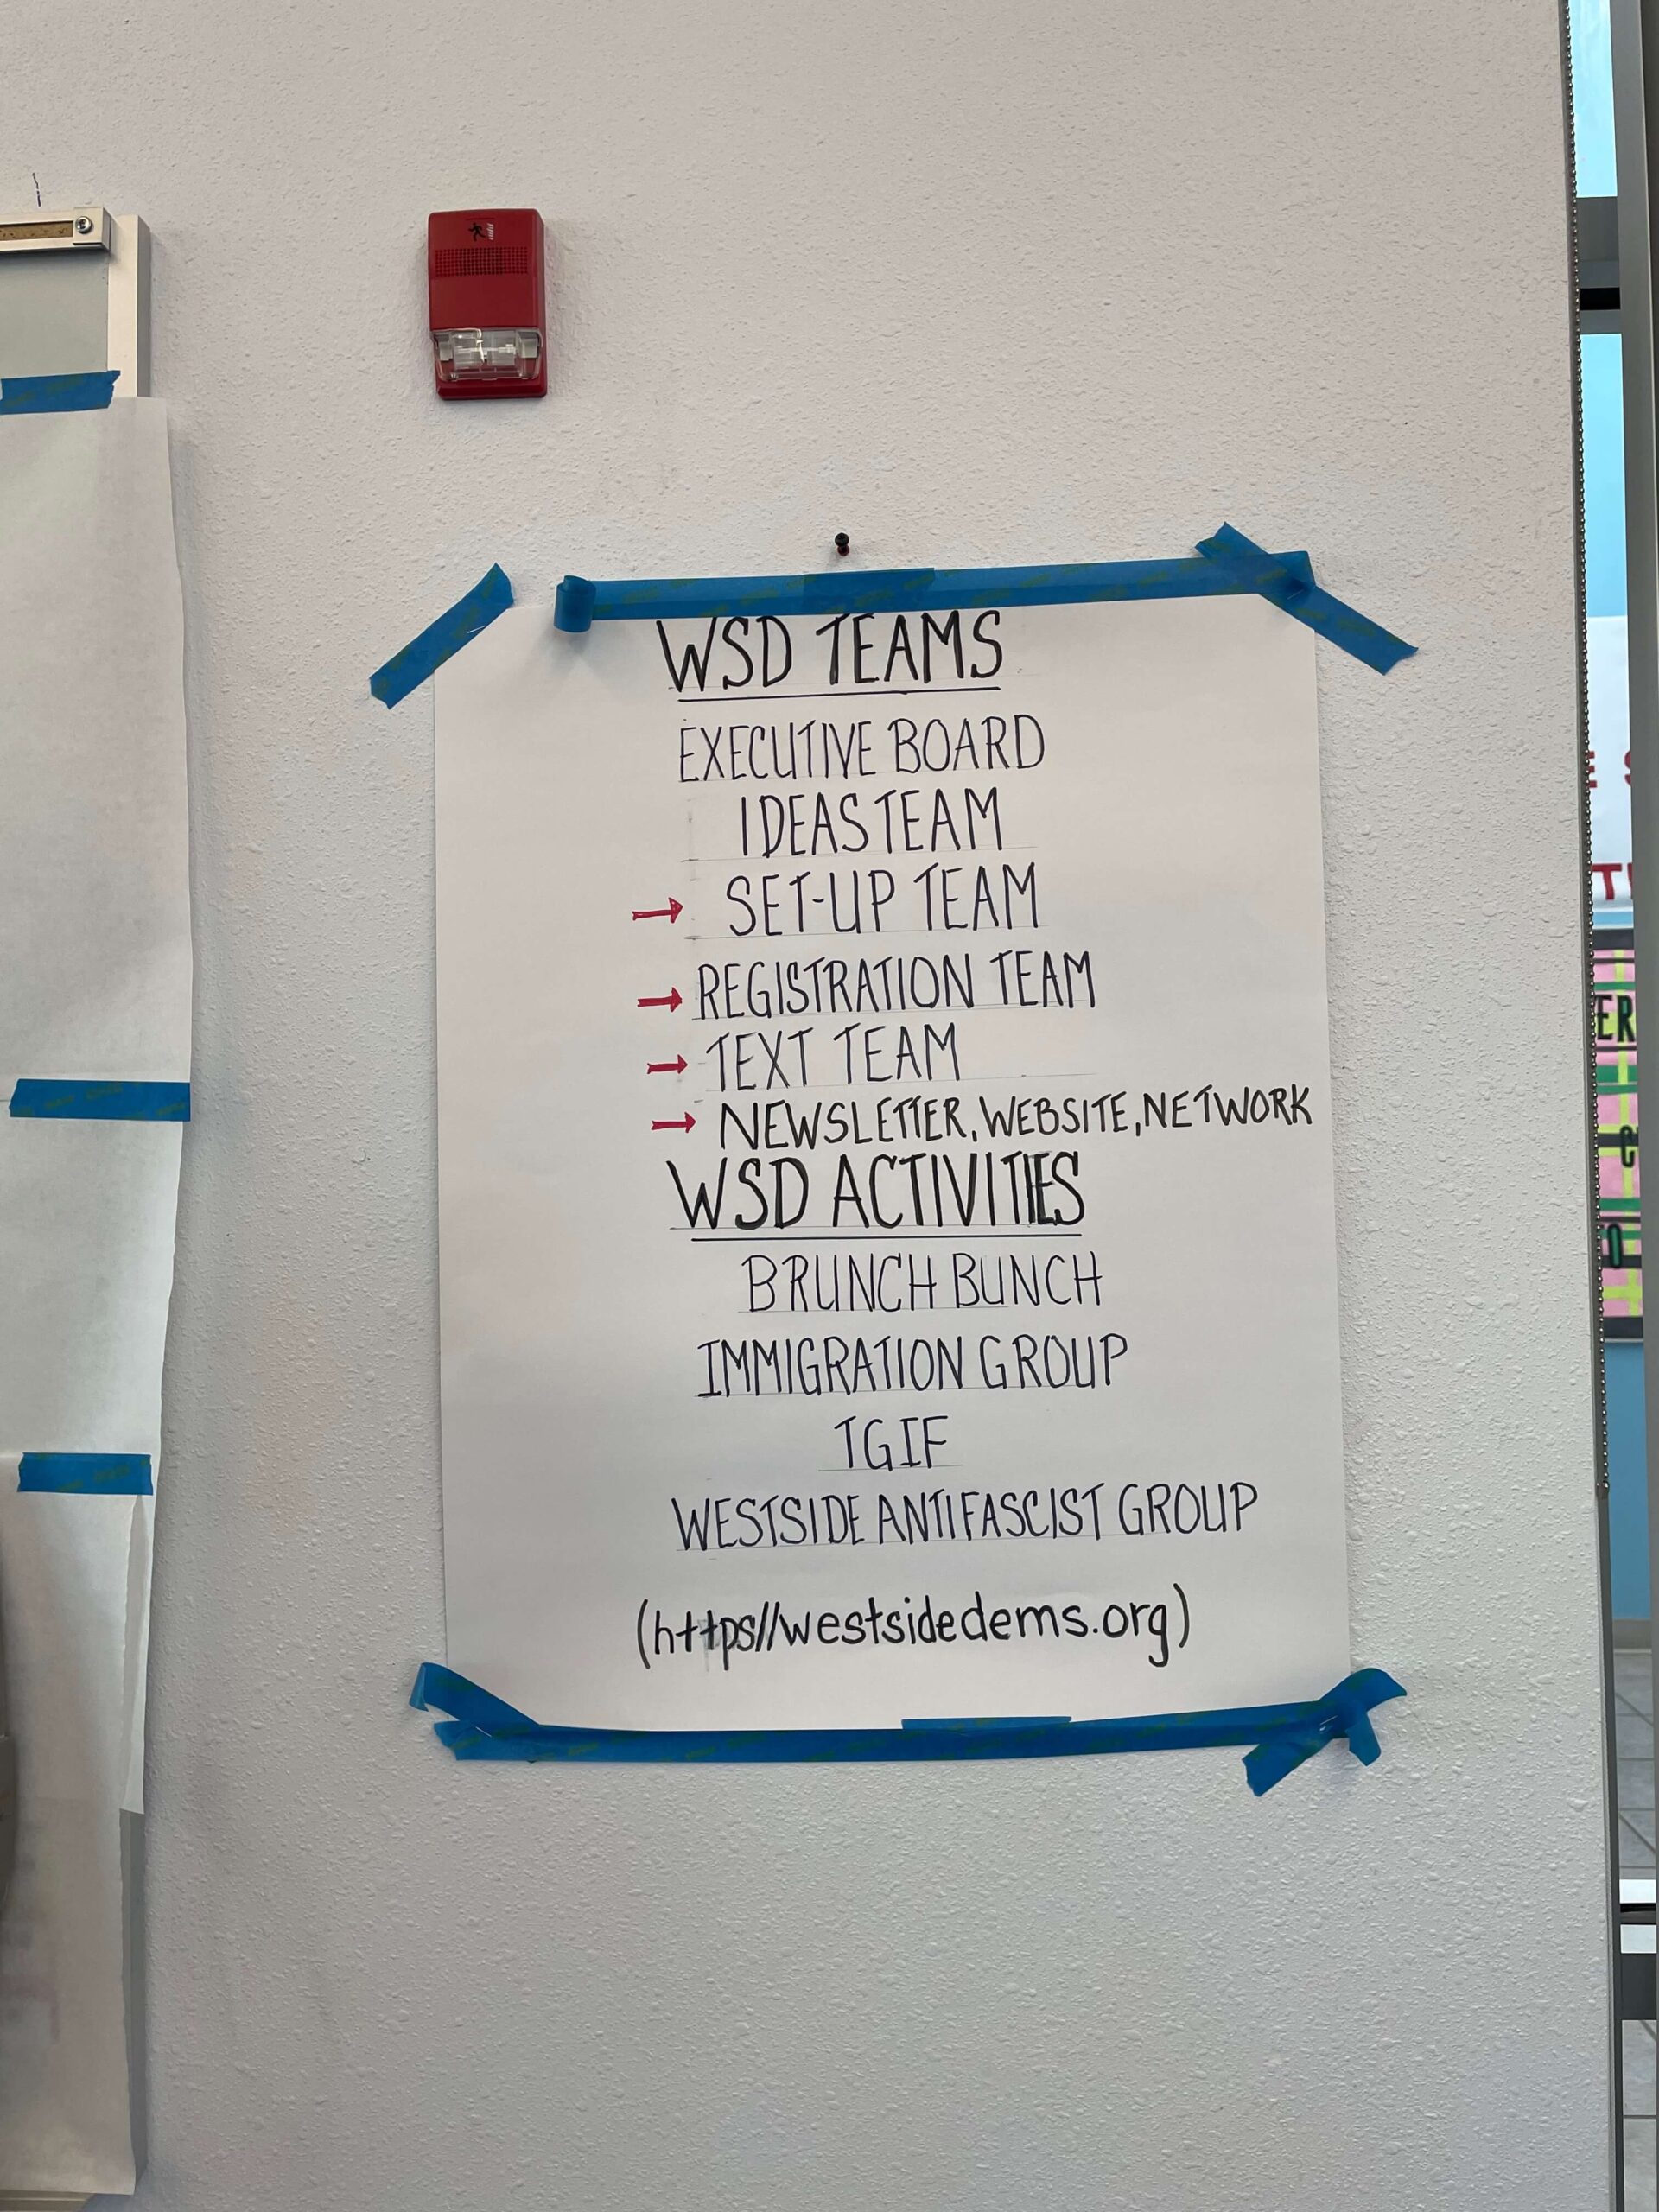 WSD TEAMS
EXECUTIVE BOARD
IDEAS TEAM
→ SET-UP TEAM
→ REGISTRATION TEAM
→ TEXT TEAM
→ NEWSLETTER, WEBSITE, NETWORK
WSD ACTIVITIES
BRUNCH BUNCH
IMMIGRATION GROUP
TGIF
WESTSIDE ANTIFASCIST GROUP
(https//westsidedems.org)
ER